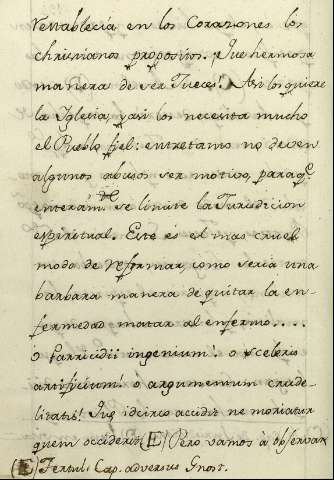 restablecia en los Corazones los
christianos propositos. Que hermosa
manera de ser Jueces! Asi los quiere
la Iglesia, y asi los necesita mucho
el Pueblo fiel: entretanto no deven
algunos abusos ser motivo, paraq.e
enteram.te se limite la Jurisdicion
espiritual. Este és el mas cruel
modo de reformar, como seria una
barbara manera de quitar la en-
fermedad matar al enfermo....
O Parricidii ingenium! o sceleris
artificium! o argumentum crude-
litatis! Qui idcirco accidit ne moriatur
quem occiderit (E) Pero vamos à observar
(E) Tertul. Cap. adversus Gnost.